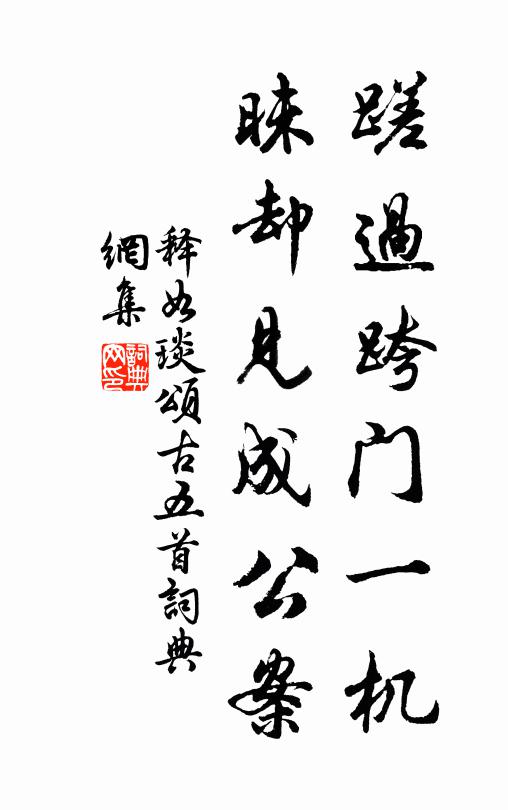 蹉過跨门一机
睐却見成公案
释如琰頌古五首詞典
網集
詞典网印